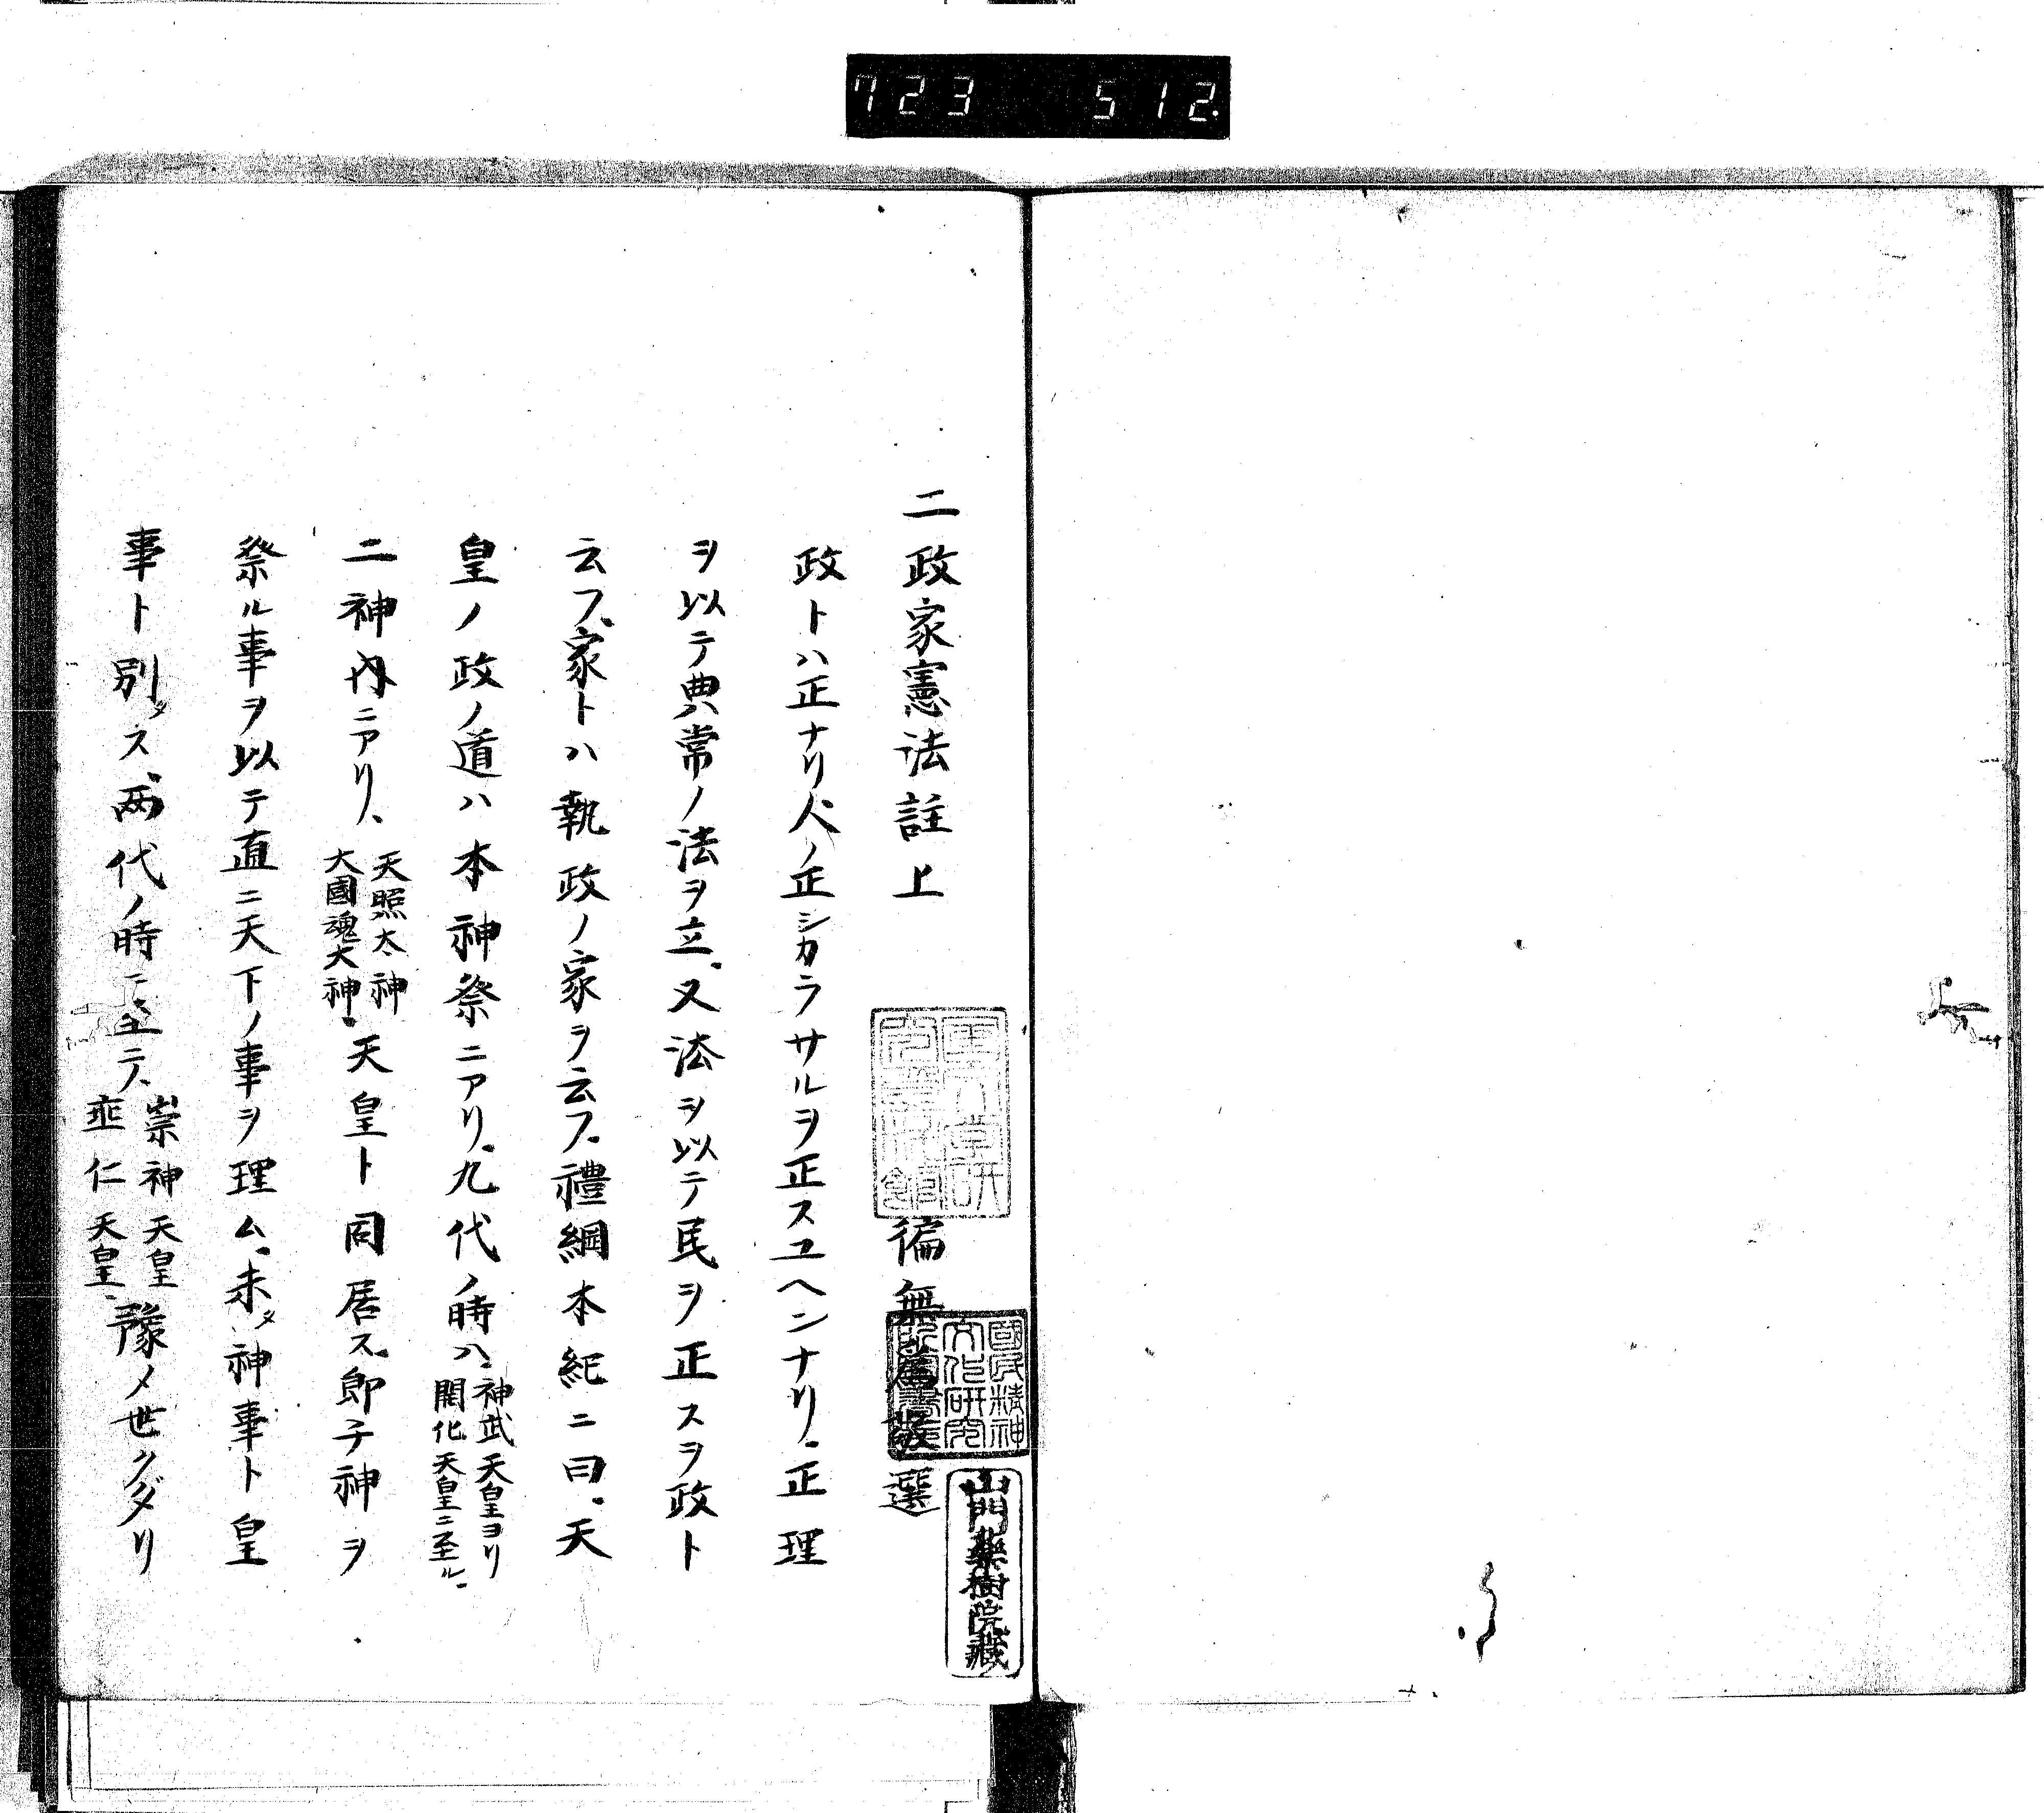 723 512
二政家憲法註上
徧無為敬選
國民精神
文化研究
山門藥樹院藏
政トハ正ナリ人ノ正シカラサルヲ正スユヘンナリ正理
ヲ以テ典常ノ法ヲ立又法ヲ以テ民ヲ正スヲ政ト
云フ家トハ執政ノ家ヲ云フ禮綱本紀ニ曰天
皇ノ政ノ道ハ本神祭ニアリ九代ノ時ハ神武天皇ヨリ
開化天皇ニ至ル
二神内ニアリ天照太神
大國魂大神天皇ト同居ス郎子神ヲ
祭ル事ヲ以テ直ニ天下ノ事ヲ理ム未タ神事ト皇
事ト別タス两代ノ時ニ至テ崇神天皇
垂仁天皇豫メ世クダリ